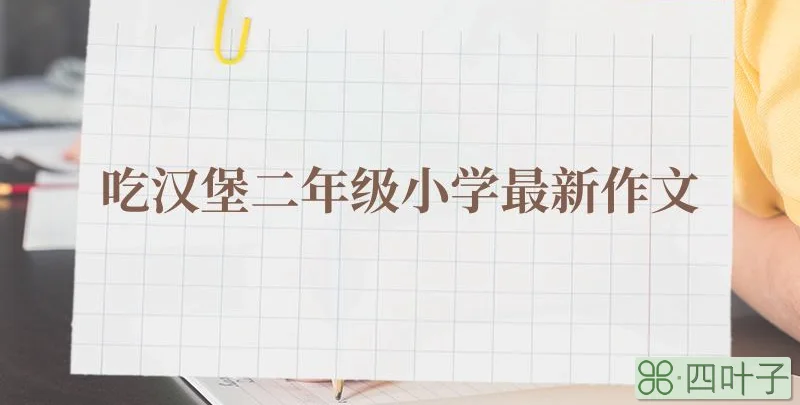 吃汉堡二年级小学最新作文
四叶子